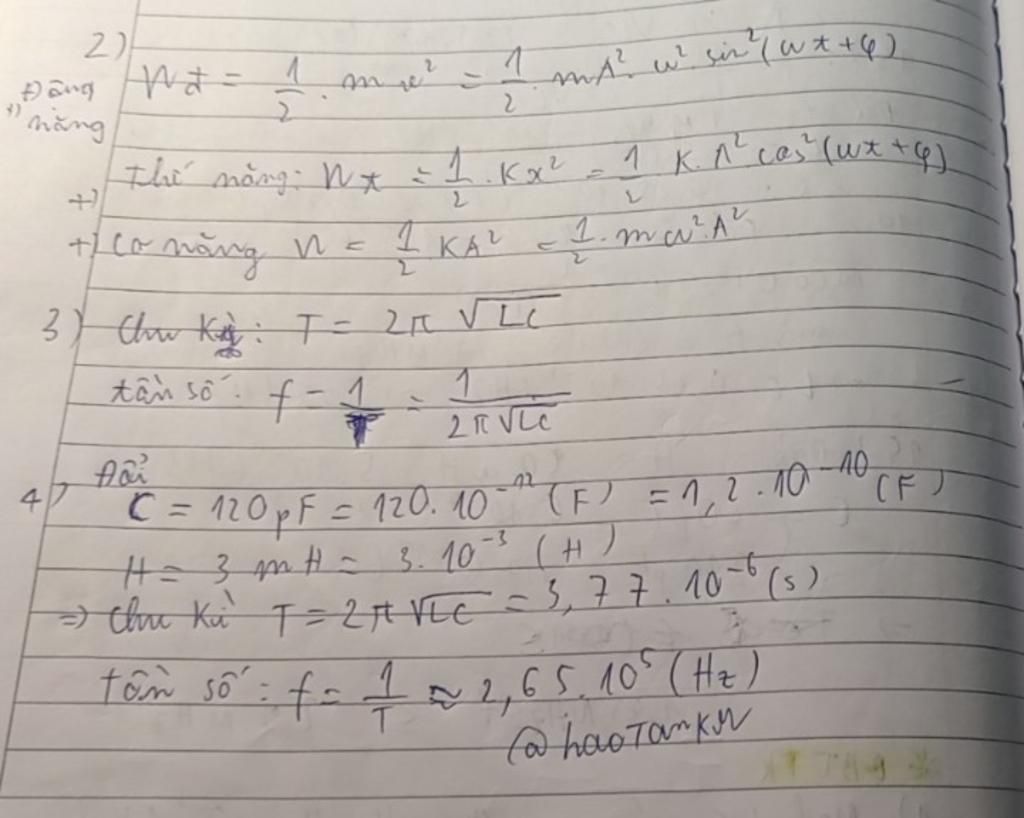 2)
+) Động năng Wđ = 1/2 . mv² = 1/2 . mA². ω² sin²(ωt+φ)
+) Thế năng: Wt = 1/2 . Kx² = 1/2 K.A² cos²(ωt+φ)
+) Cơ năng W = 1/2 KA² = 1/2 . mω².A²
3) Chu kỳ: T = 2π √LC
tần số: f = 1/T = 1/2π√LC
4) Đổi
C = 120pF = 120. 10⁻¹² (F) = 1,2 . 10⁻¹⁰ (F)
H = 3 mH = 3. 10⁻³ (H)
=> Chu kì T = 2π √LC = 3,77. 10⁻⁶ (s)
tần số: f = 1/T ≈ 2,65. 10⁵ (Hz)